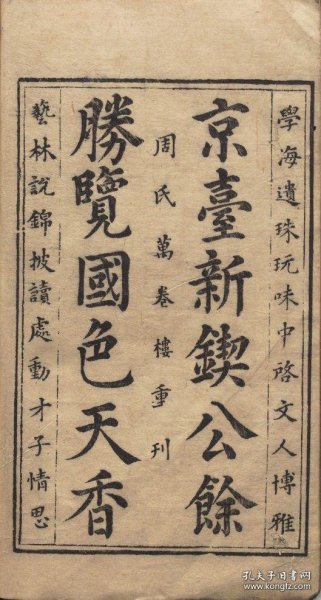 學海遺珠玩味中啓文人博雅
京臺新鍥公餘
周氏萬卷樓重刊
勝覽國色天香
藝林說錦披讀處動才子情思
孔夫子旧书网